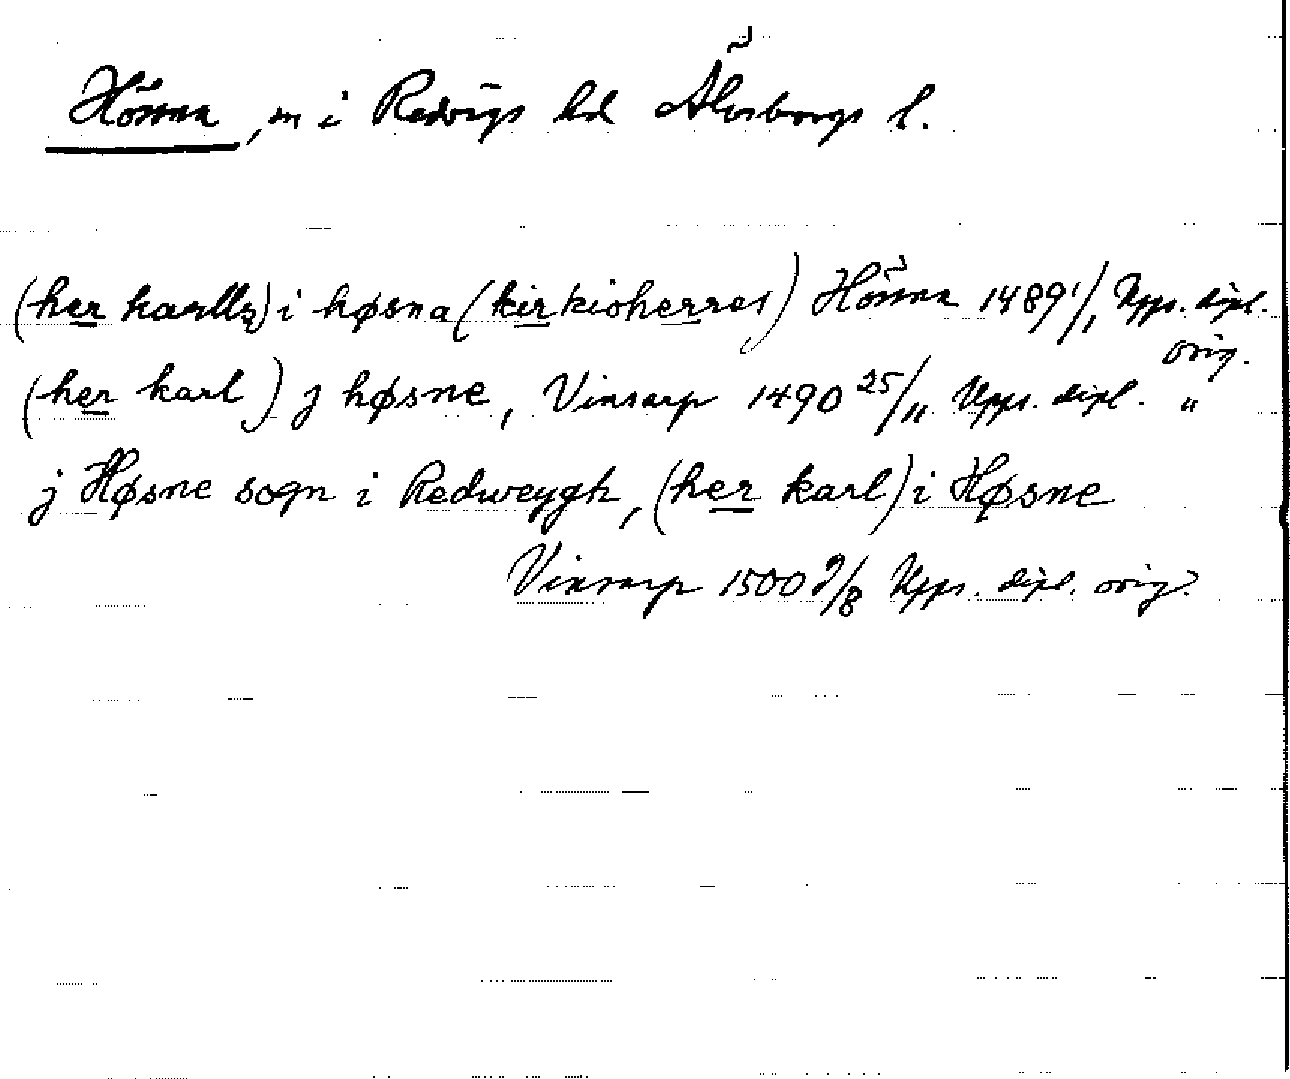 Hössna, sn i Redvägs hd Älvsborgs l.
(her karllz) i høsna (kirkioherres) Hössna 1489 1/1 Upps. dipl.
orig.
(her karl) j høsne, Vinsarp 1490 25/11 Upps. dipl. "
j Høsne sogn i Redweygh, (her karl) i Høsne
Vinsarp 1500 9/8 Upps. dipl. orig.